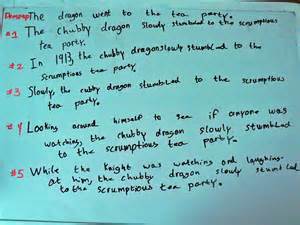 The dragon went to the tea party.
#1 The chubby dragon slowly stumbled to the scrumptious
tea party.
#2 In 1913, the chubby dragon slowly stumbled to the
scrumptious tea party.
#3 Slowly, the cubby dragon stumbled to the scrumptious
tea party.
#4 Looking around himself to see if anyone was
watching, the chubby dragon slowly stumbled
to the scrumptious tea party.
#5 While the knight was watching and laughing
at him, the chubby dragon slowly stumbled
to the scrumptious tea party.